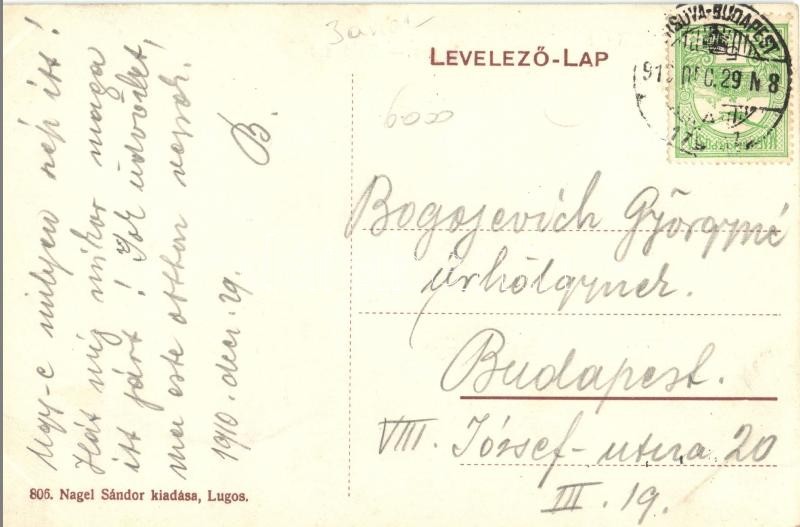 LEVELEZŐ-LAP
ORSOVA-BUDAPEST
910 DEC. 29 N 8
Ugy-e milyen nép itt!
Hát még mikor maga
itt járt! Sok üdvözlet,
ma este otthon vagyok.
B.
1910. dec. 29.
Bogojevich Györgyné
úrhölgynek.
Budapest.
VIII. József-utca 20
III. 19.
806. Nagel Sándor kiadása, Lugos.